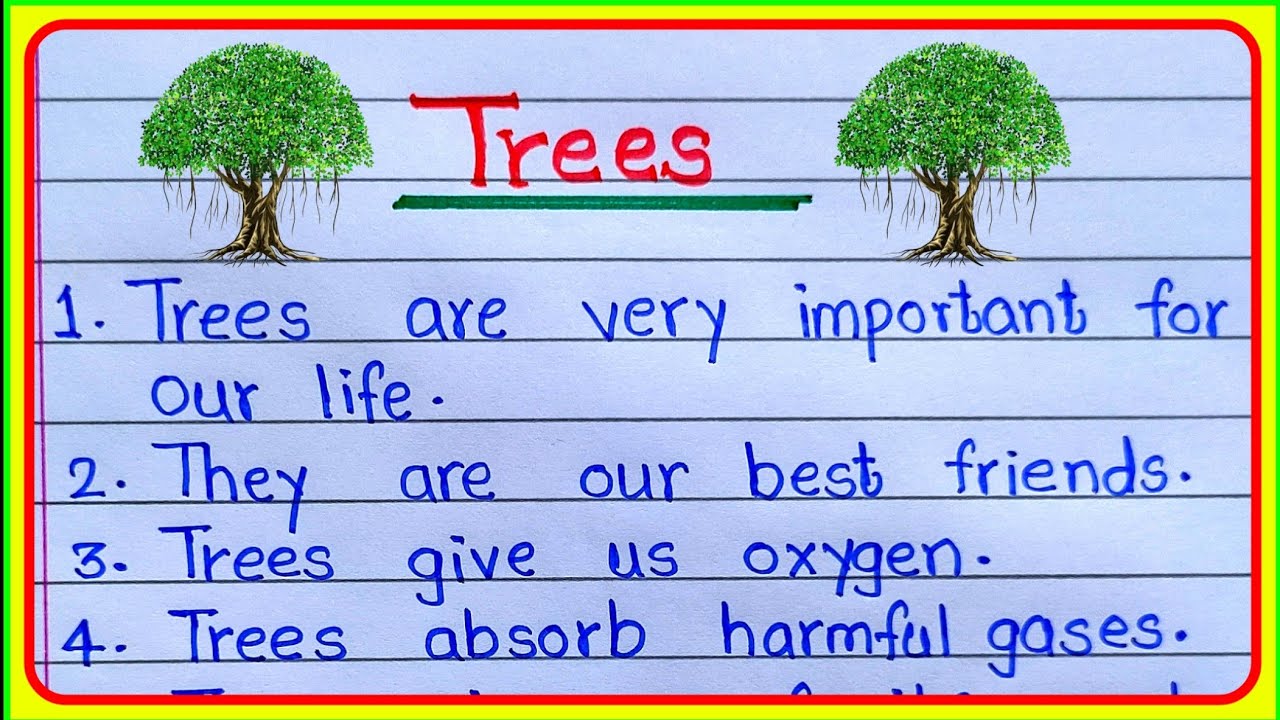 Trees
1. Trees are very important for
our life.
2. They are our best friends.
3. Trees give us oxygen.
4. Trees absorb harmful gases.